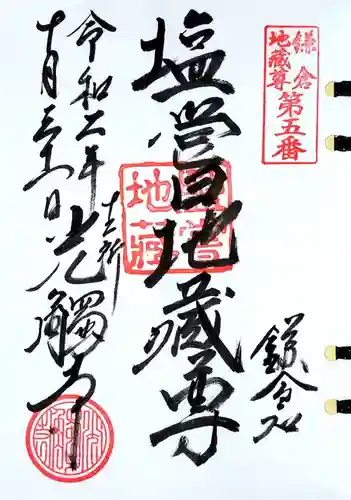 鎌倉
地蔵尊
第五番
鎌倉
塩嘗地蔵尊
塩嘗
地蔵
十二所
光觸寺
令和二年
十月三十日